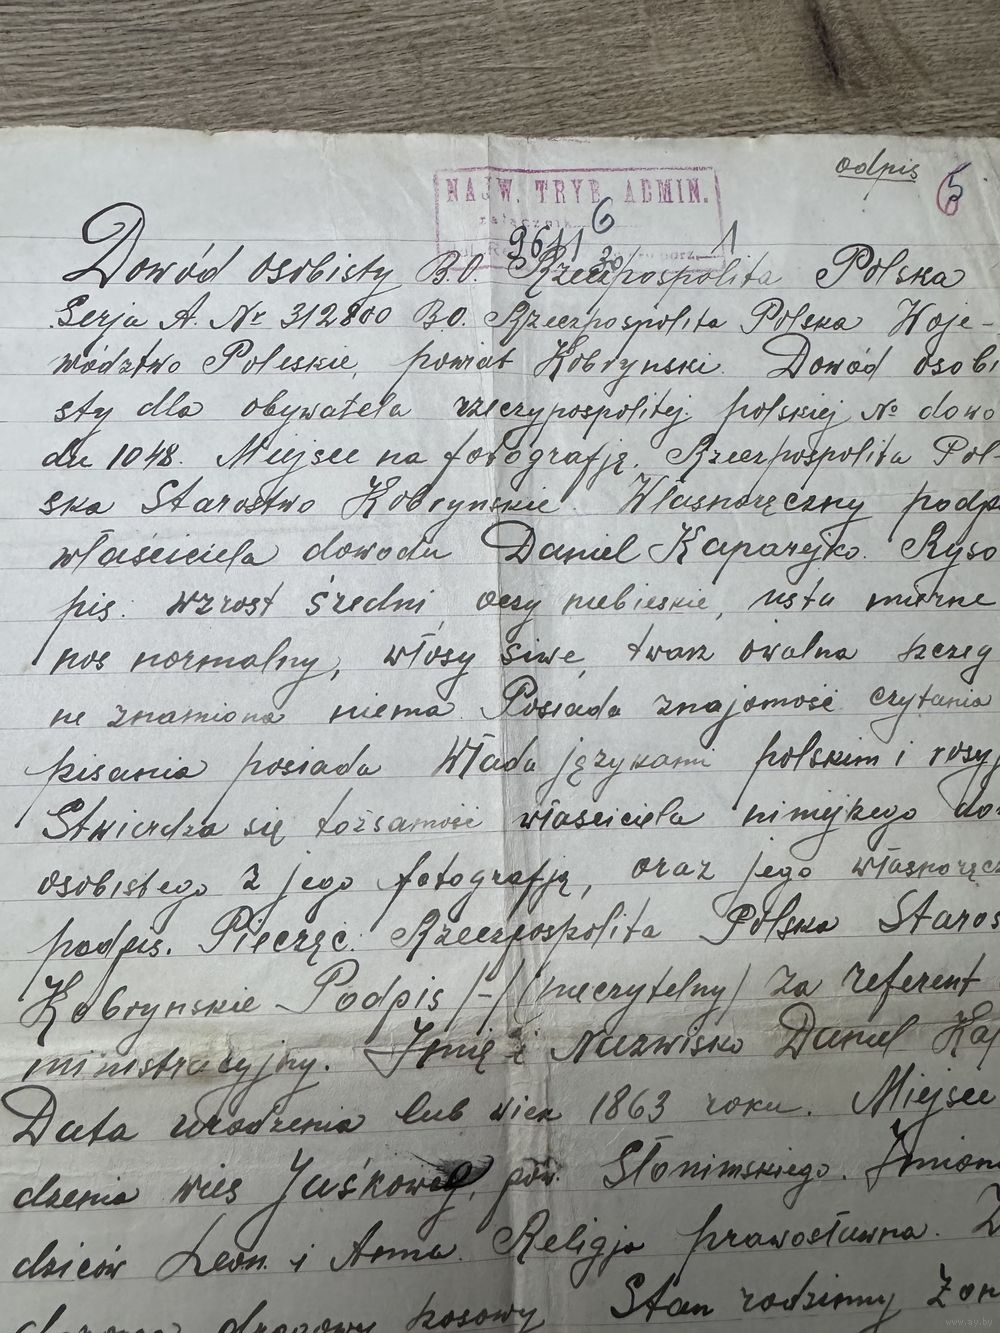 odpis
5
NAJW. TRYB. ADMIN.
6
9611
1
Dowód osobisty B.O. Rzeczpospolita Polska
Serja A. Nr 312800 BO. Rzeczpospolita Polska Woje-
wództwo Poleskie, powiat Kobrynski. Dowód osobi
sty dla obywatela rzeczypospolitej polskiej No dowo
du 1048. Miejsce na fotografją. Rzeczpospolita Pol-
ska Starostwo Kobrynskie. Własnoręczny podp
właściciela dowodu Daniel Kaparejko. Ryso
pis. wzrost średni, oczy niebieskie, usta mierne
nos normalny, włosy siwe, twarz owalna szczeg
ne znamiona niema. Posiada znajomość czytania
pisania posiada Włada językami polskim i rosyj
Stwierdza się tożsamość właściciela niniejszego do
osobistego z jego fotografją, oraz jego własnoręcz
podpis. Pieczęć. Rzeczpospolita Polska Staros
Kobrynskie Podpis /-/ (nieczytelny) za referent
ministracyjny. Imię i Nazwisko Daniel Kap
Data urodzenia lub wiek 1863 roku. Miejsce
dzenia wieś Juśkowcy, pow. Słonimskiego. Imiona
dziców Leon i Anna. Religja prawosławna. Z
drogowy kosowy Stan rodzinny żon
www.ay.by